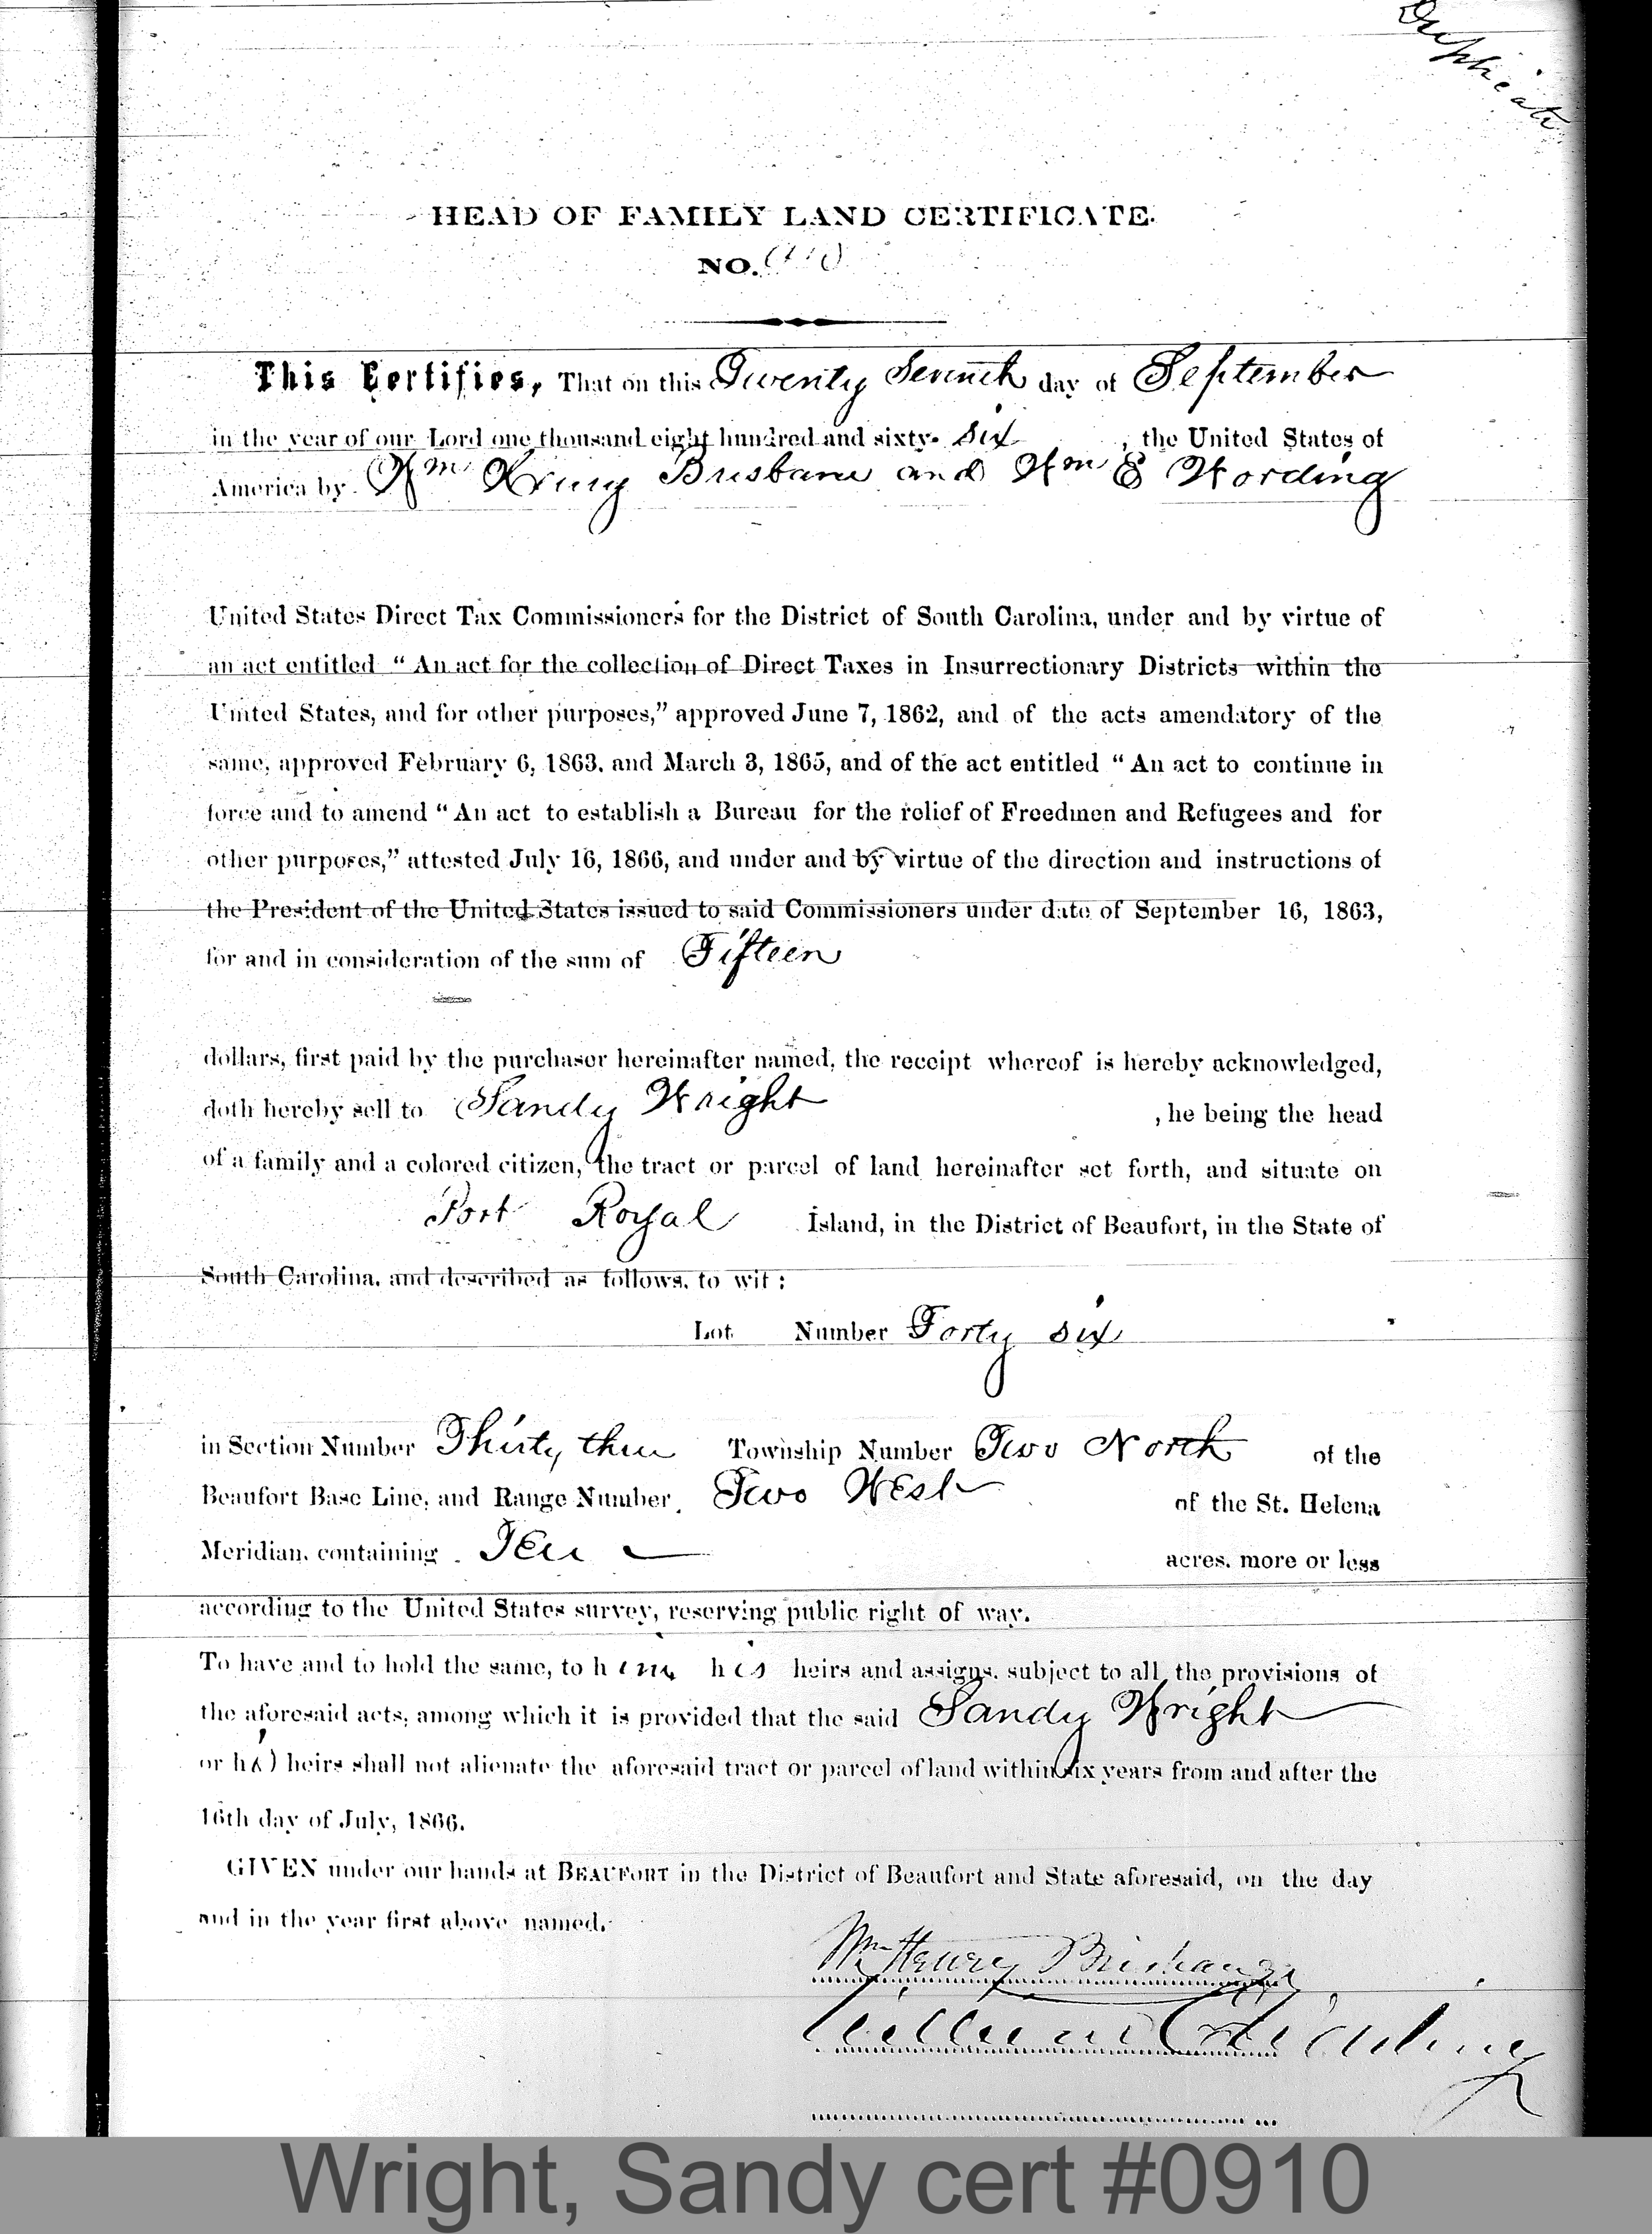 Duplicate
HEAD OF FAMILY LAND CERTIFICATE.
NO. 910
This Certifies, That on this Twenty Seventh day of September
in the year of our Lord one thousand eight hundred and sixty- six , the United States of
America by Wm Henry Brisbane and Wm E Wording
United States Direct Tax Commissioners for the District of South Carolina, under and by virtue of
an act entitled "An act for the collection of Direct Taxes in Insurrectionary Districts within the
United States, and for other purposes," approved June 7, 1862, and of the acts amendatory of the
same, approved February 6, 1863, and March 3, 1865, and of the act entitled "An act to continue in
force and to amend "An act to establish a Bureau for the relief of Freedmen and Refugees and for
other purposes," attested July 16, 1866, and under and by virtue of the direction and instructions of
the President of the United States issued to said Commissioners under date of September 16, 1863,
for and in consideration of the sum of Fifteen
dollars, first paid by the purchaser hereinafter named, the receipt whereof is hereby acknowledged,
doth hereby sell to Sandy Wright , he being the head
of a family and a colored citizen, the tract or parcel of land hereinafter set forth, and situate on
Port Royal Island, in the District of Beaufort, in the State of
South Carolina, and described as follows, to wit:
Lot Number Forty six
in Section Number Thirty three Township Number Two North of the
Beaufort Base Line, and Range Number Two West of the St. Helena
Meridian, containing Ten acres, more or less
according to the United States survey, reserving public right of way.
To have and to hold the same, to him his heirs and assigns, subject to all the provisions of
the aforesaid acts, among which it is provided that the said Sandy Wright
or his heirs shall not alienate the aforesaid tract or parcel of land within six years from and after the
16th day of July, 1866.
GIVEN under our hands at BEAUFORT in the District of Beaufort and State aforesaid, on the day
and in the year first above named.
Wm Henry Brisbane
William E Wording
Wright, Sandy cert #0910